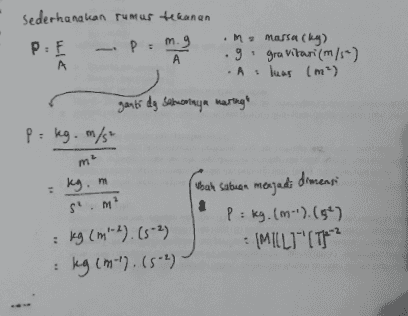 Sederhanakan rumus tekanan
P = F/A → P = m.g/A
• m = massa (kg)
• g = gravitasi (m/s²)
• A = luas (m²)
ganti dg satuannya masing²
P = kg . m/s² / m²
= kg . m / s² . m²
= kg (m¹⁻²) . (s⁻²)
= kg (m⁻¹) . (s⁻²)
Ubah satuan menjadi dimensi
P = kg . (m⁻¹) . (s⁻²)
= [M][L]⁻¹ [T]⁻²